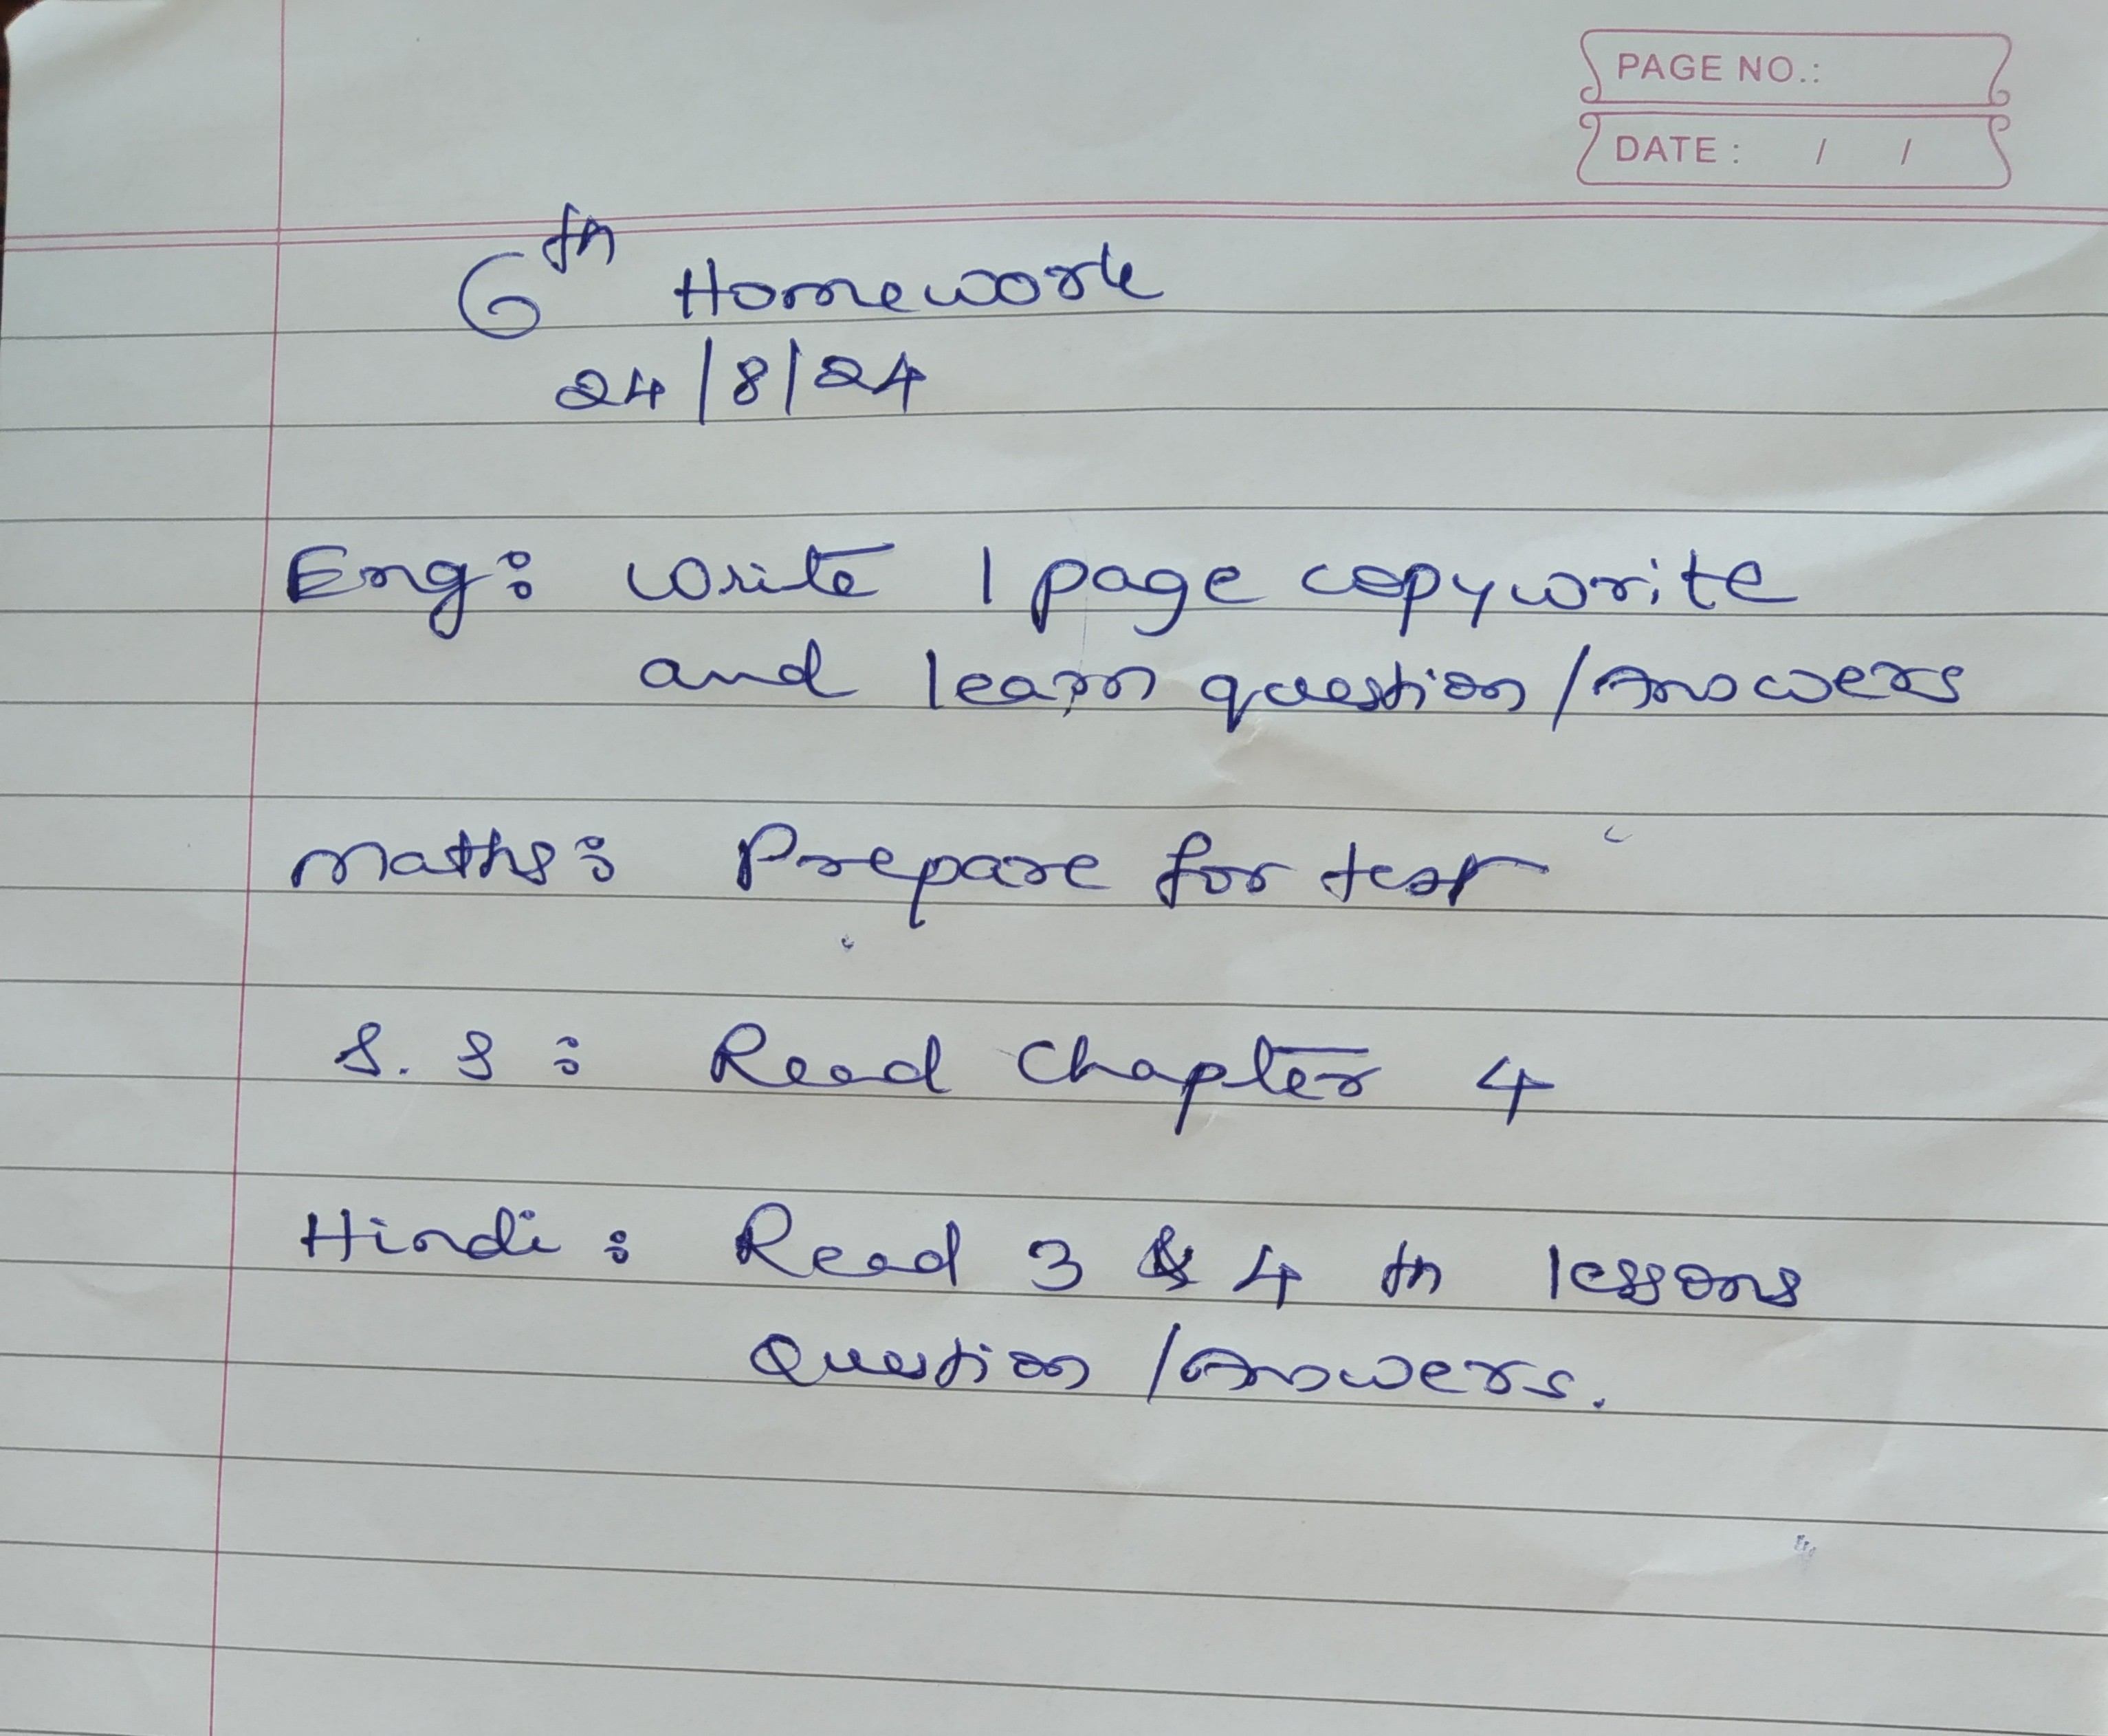 PAGE NO.:
DATE : / /
6th Homework
24/8/24
Eng: write 1 page copywrite
and learn question/Answers
Maths: Prepare for test
S. S: Read Chapter 4
Hindi: Read 3 & 4 th lessons
Question/Answers.